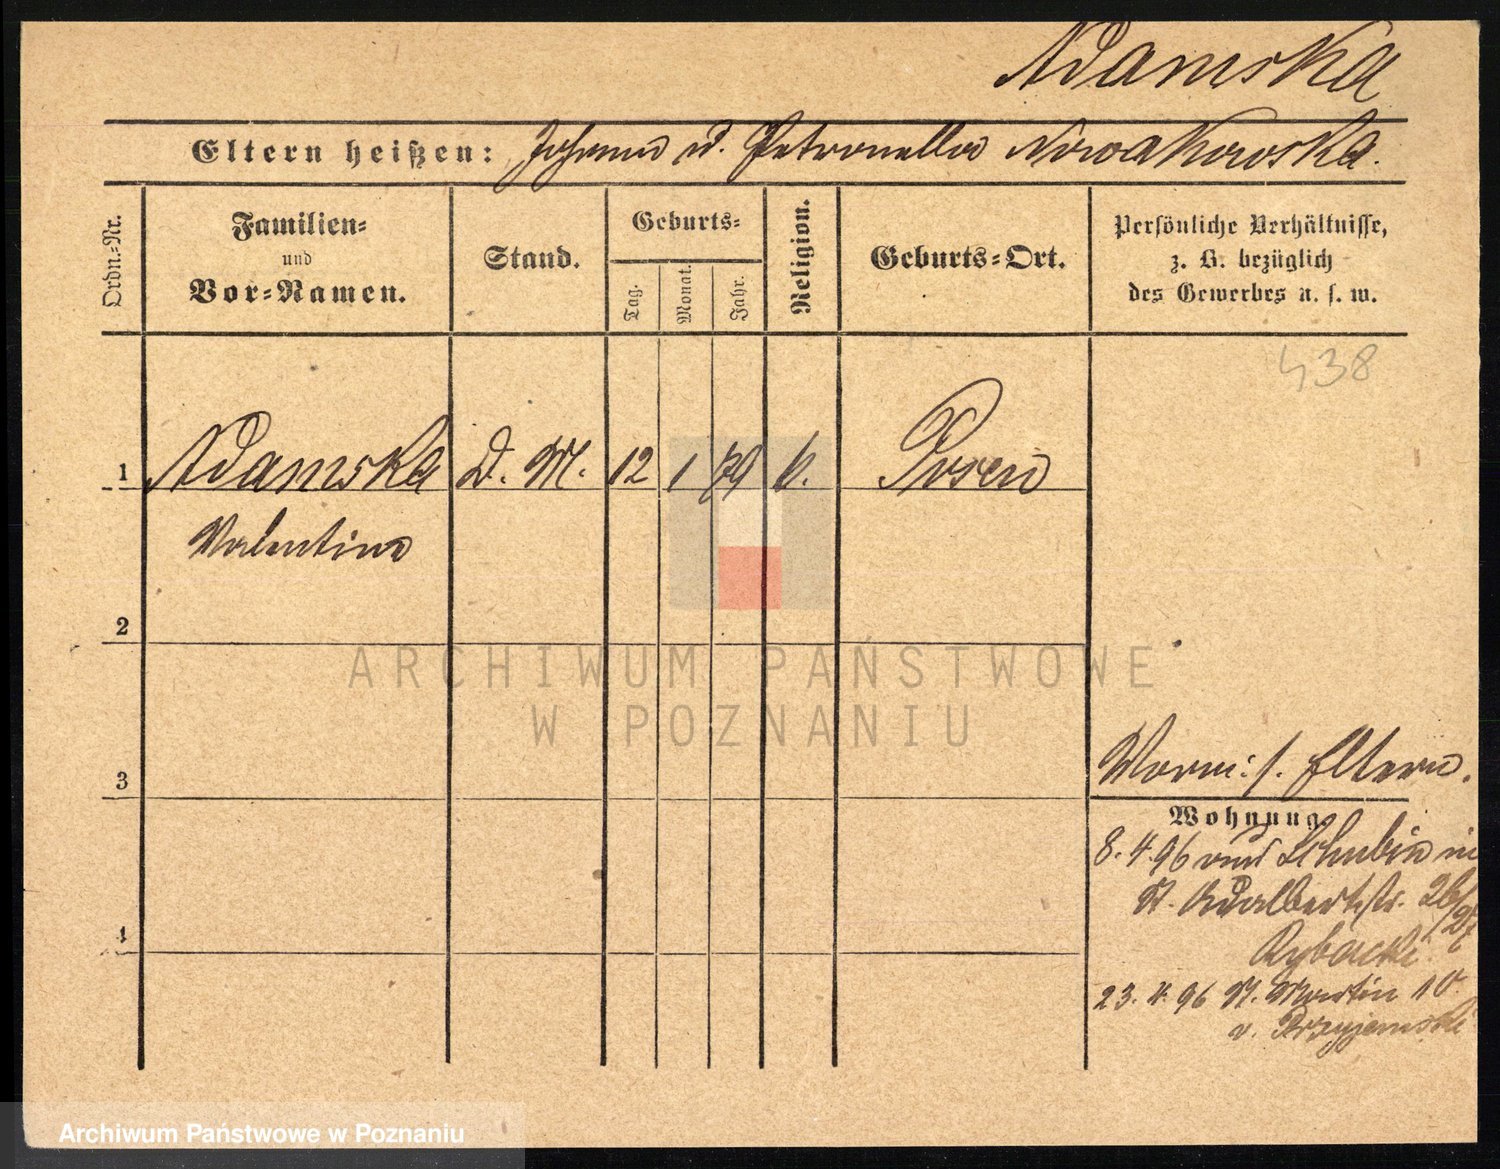 Adamska
Eltern heißen: Johann u. Petronella Nowakowska.
Ordn.-Nr.
Familien-
und
Vor-Namen.
Stand.
Geburts-
Tag.
Monat.
Jahr.
Religion.
Geburts-Ort.
Persönliche Verhältnisse,
z. B. bezüglich
des Gewerbes u. s. w.
438
1 Adamska D. M. 12 1 79 k. Posen
Valentine
2
ARCHIWUM PAŃSTWOWE
W POZNANIU
3
Eltern.
Wohnung.
8. 4. 96 Schubin in
St. Adalbertstr. 26/27
Rybacki.
4
23. 4. 96 St. Martin 10
v. Przyjemski
Archiwum Państwowe w Poznaniu